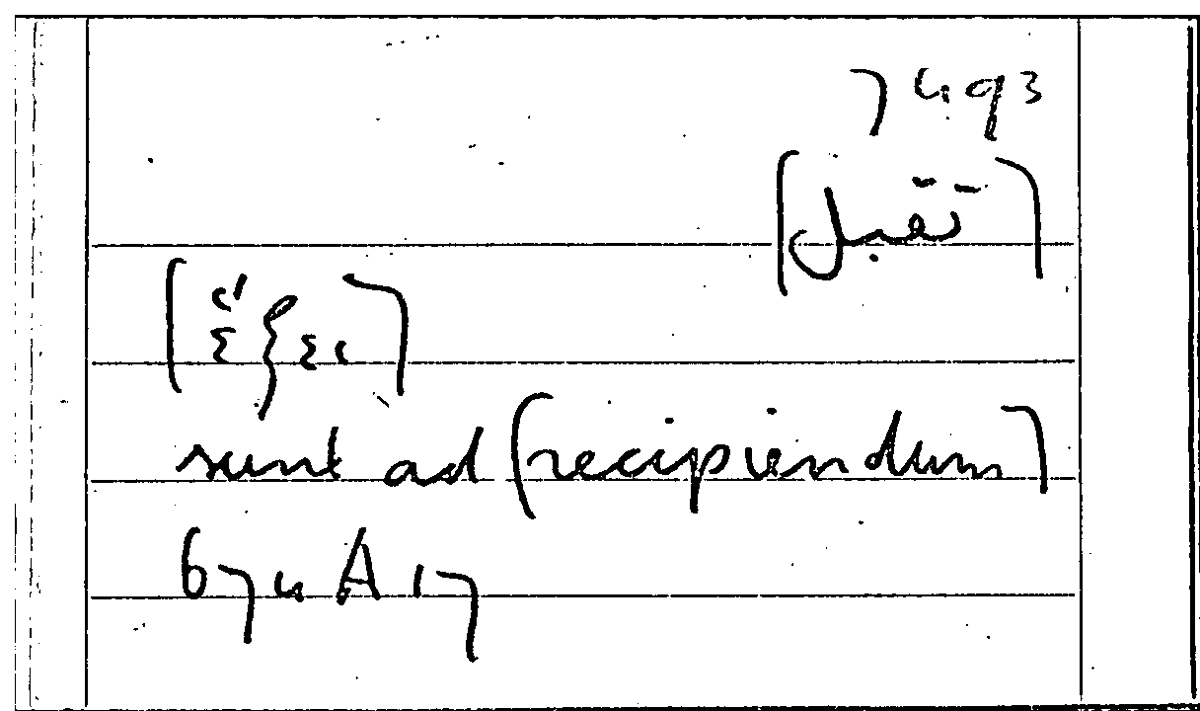 7493
[تقبل]
[ἕξει]
sunt ad [recipiendum]
674A17